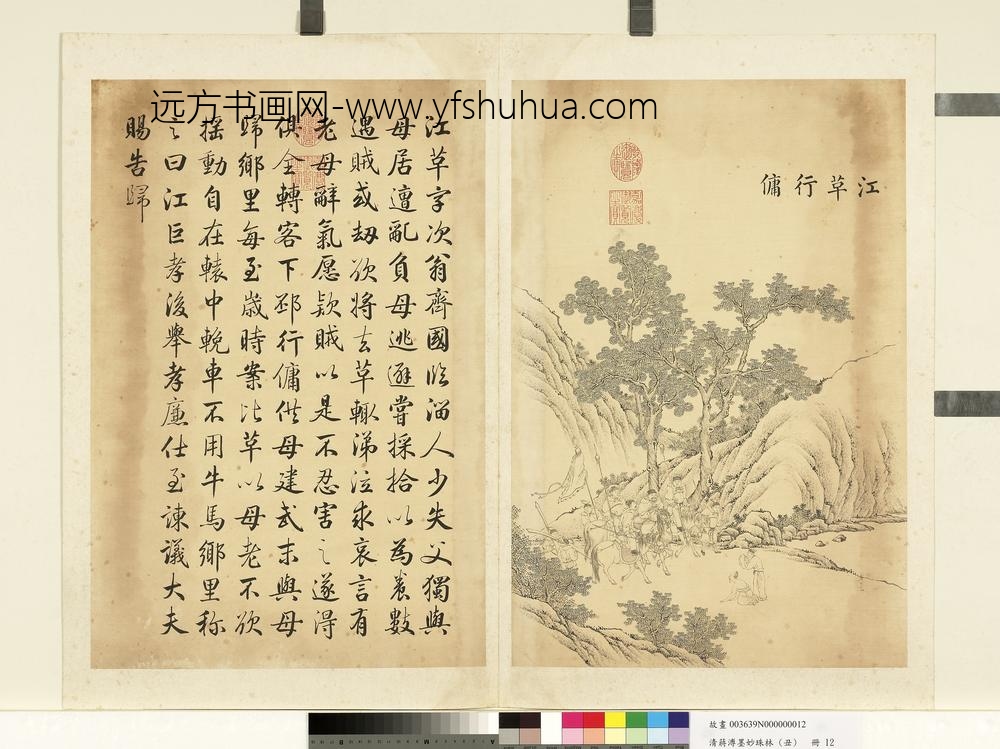 远方书画网-www.yfshuhua.com
江革行傭
江革字次翁齊國臨淄人少失父獨與
母居遭亂負母逃避嘗採拾以為養數
遇賊或劫欲將去革輒涕泣求哀言有
老母辭氣愿款賊以是不忍害之遂得
俱全轉客下邳行傭供母建武末與母
歸鄉里每至歲時案比革以母老不欲
搖動自在轅中輓車不用牛馬鄉里称
之曰江巨孝後舉孝廉仕至諫議大夫
賜告歸
故畫 003639N000000012
清蔣溥墨妙珠林（丑） 冊 12